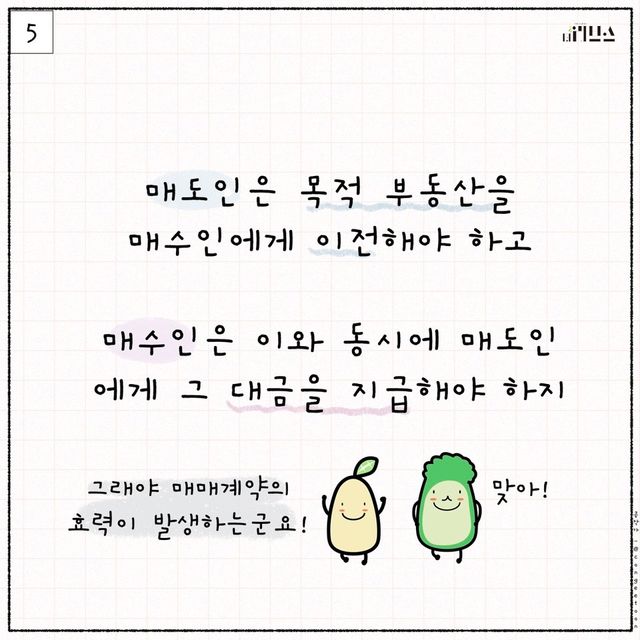 5
매도인은 목적 부동산을
매수인에게 이전해야 하고
매수인은 이와 동시에 매도인
에게 그 대금을 지급해야 하지
그래야 매매계약의
효력이 발생하는군요!
맞아!